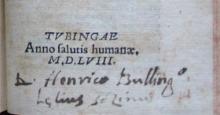 TVBINGAE
Anno salutis humanæ,
M.D.LVIII.
D. Henrico Bulling°
Lelius Sozinus